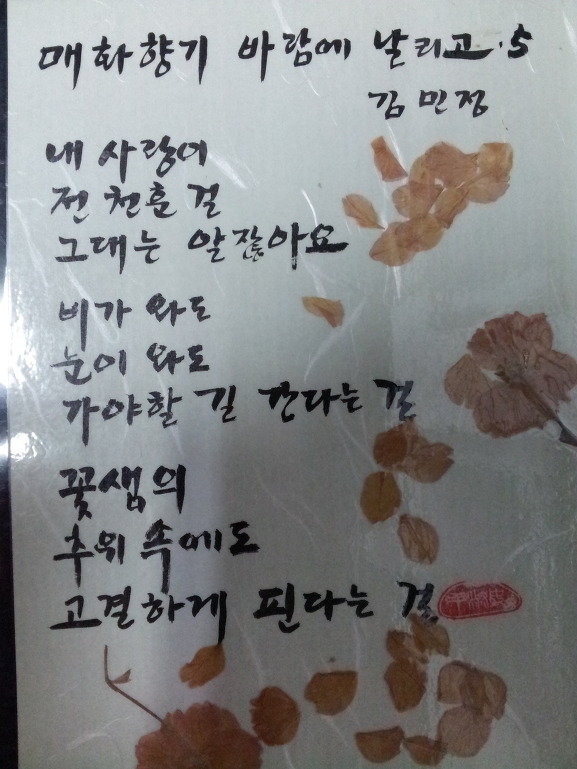 매화향기 바람에 날리고·5
김민정
내 사랑이
전 천훈 걸
그대는 알잖아요
비가 와도
눈이 와도
가야할 길 간다는 걸
꽃샘의
추위 속에도
고결하게 핀다는 걸